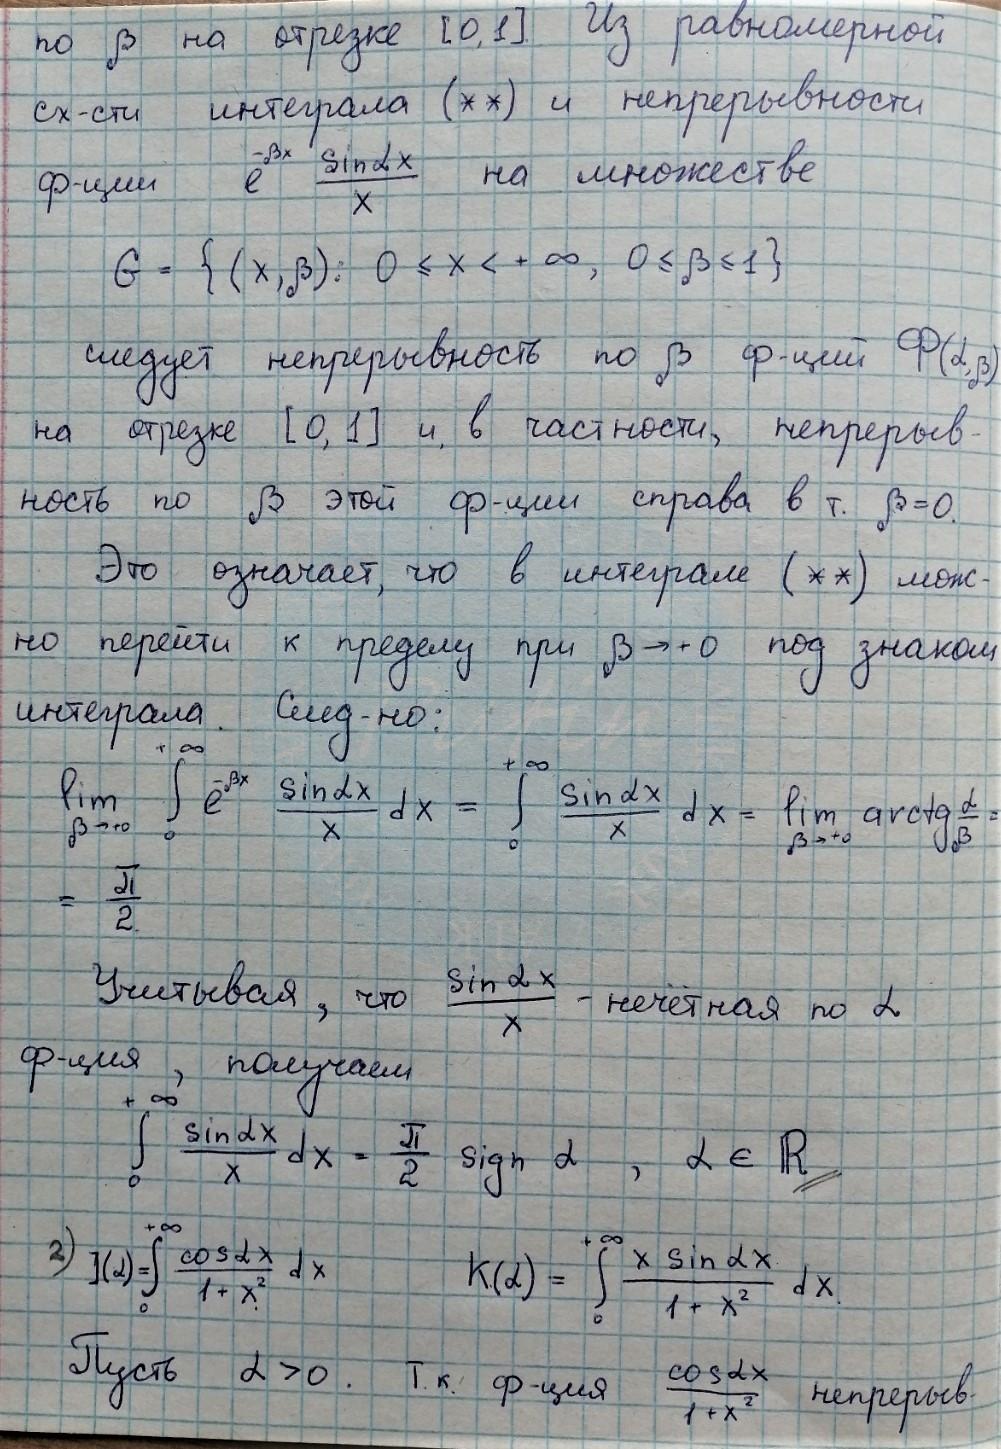 по β на отрезке [0,1] Из равномерной
сх-сти интеграла (**) и непрерывности
ф-ции e^{-βx} \frac{sin αx}{x} на множестве
G = {(x,β): 0 ≤ x < +∞, 0 ≤ β ≤ 1}
следует непрерывность по β ф-ций Ф(α,β)
на отрезке [0,1] и, в частности, непрерыв-
ность по β этой ф-ции справа в т. β=0.
Это означает, что в интеграле (**) мож-
но перейти к пределу при β→+0 под знаком
интеграла. След-но:
\lim_{β→+0} \int_0^{+∞} e^{-βx} \frac{sin αx}{x} dx = \int_0^{+∞} \frac{sin αx}{x} dx = \lim_{β→+0} arctg \frac{α}{β} =
= \frac{π}{2}
Учитывая, что \frac{sin αx}{x} - нечётная по α
ф-ция, получаем
\int_0^{+∞} \frac{sin αx}{x} dx = \frac{π}{2} sign α , α ∈ ℝ
2) J(α) = \int_0^{+∞} \frac{cos αx}{1+x^2} dx K(α) = \int_0^{+∞} \frac{x sin αx}{1+x^2} dx.
Пусть α>0. Т.к. ф-ция \frac{cos αx}{1+x^2} непрерыв-